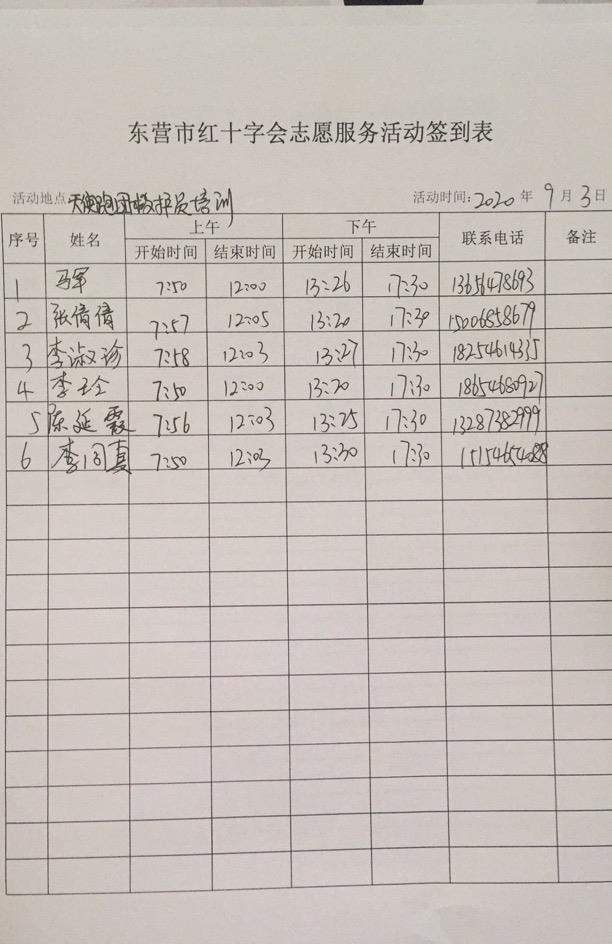 东营市红十字会志愿服务活动签到表
活动地点 天使跑团救护员培训 活动时间: 2020 年 9 月 3 日
序号 姓名 上午 下午 联系电话 备注
开始时间 结束时间 开始时间 结束时间
1 马军 7:50 12:00 13:26 17:30 13656478693
2 张倩倩 7:57 12:05 13:20 17:30 15006858679
3 李淑珍 7:58 12:03 13:27 17:30 18254614335
4 李玉全 7:50 12:00 13:20 17:30 18654680927
5 陈延霞 7:56 12:03 13:25 17:30 13287382999
6 李同真 7:50 12:03 13:30 17:30